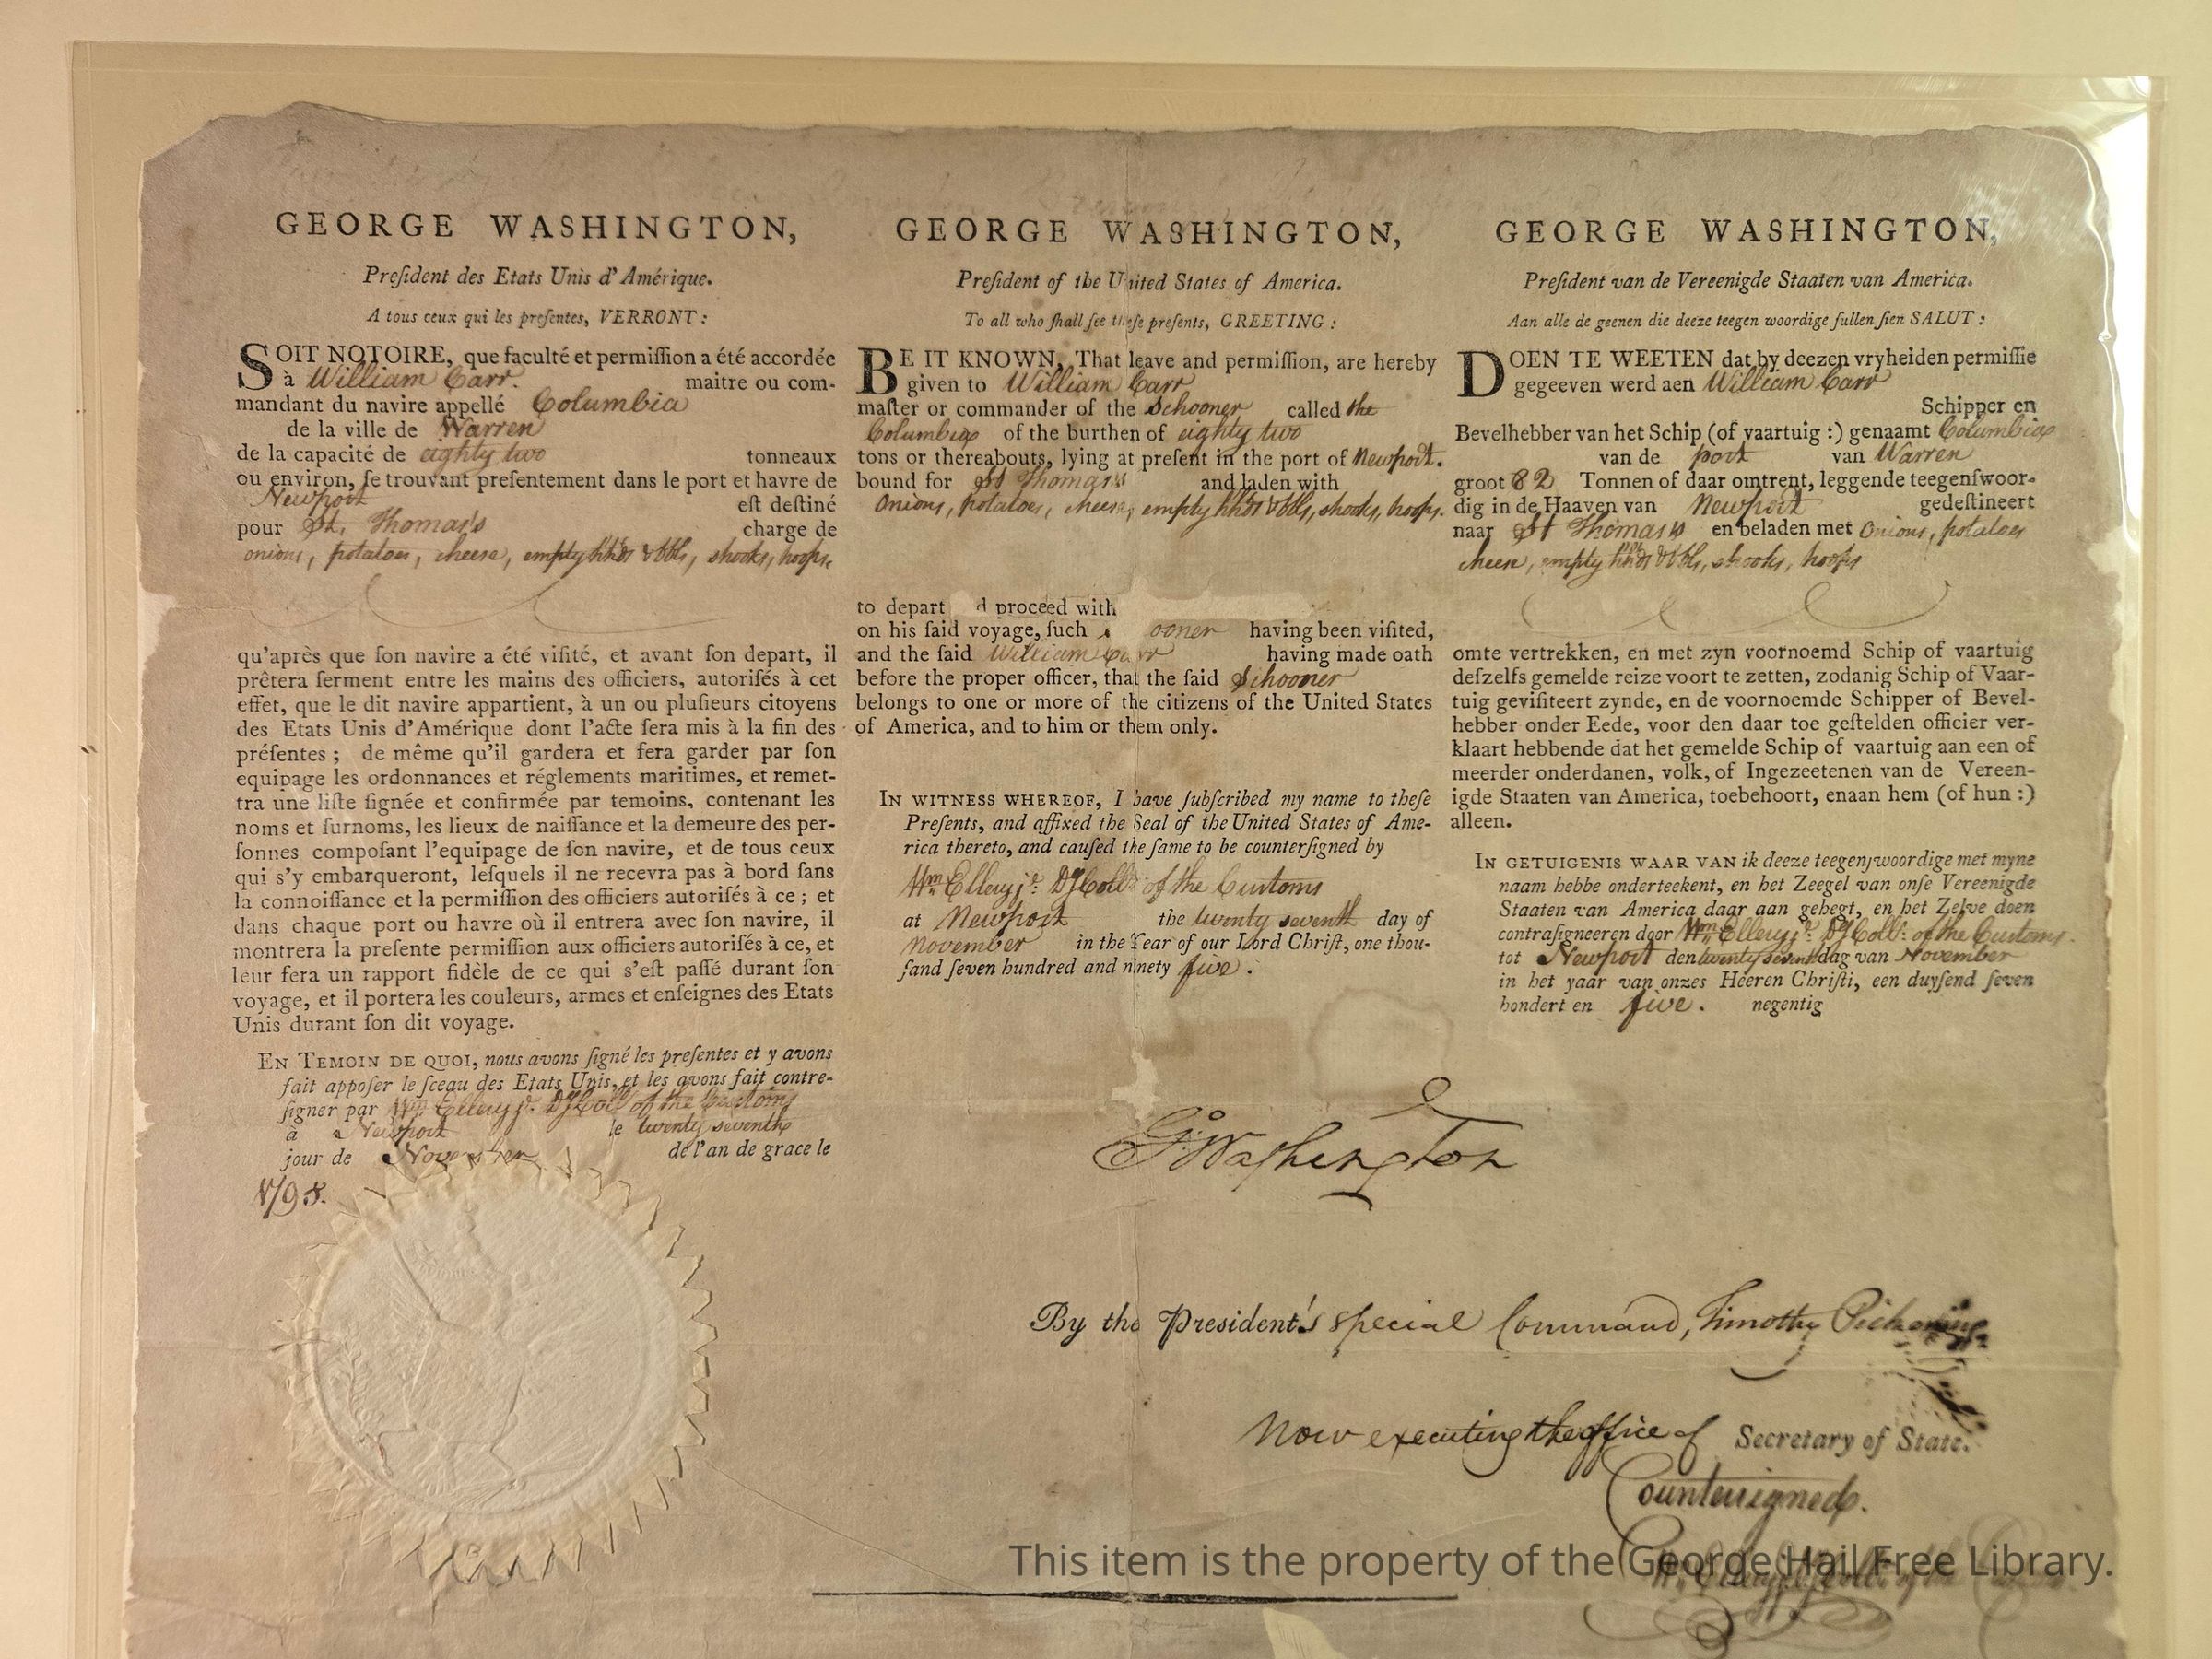 GEORGE WASHINGTON,
Preſident des Etats Unis d'Amérique.
A tous ceux qui les preſentes, VERRONT:
SOIT NOTOIRE, que faculté et permiſſion a été accordée
à William Carr. maitre ou com-
mandant du navire appellé Columbia
de la ville de Warren
de la capacité de eighty two tonneaux
ou environ, ſe trouvant preſentement dans le port et havre de
Newport eſt deſtiné
pour St. Thomas's charge de
onions, potatoes, cheese, empty hhds & bbls, shooks, hoops,
qu'après que ſon navire a été viſité, et avant ſon depart, il
prêtera ſerment entre les mains des officiers, autoriſés à cet
effet, que le dit navire appartient, à un ou pluſieurs citoyens
des Etats Unis d'Amérique dont l'acte ſera mis à la fin des
préſentes; de même qu'il gardera et fera garder par ſon
equipage les ordonnances et réglements maritimes, et remet-
tra une liſte ſignée et confirmée par temoins, contenant les
noms et ſurnoms, les lieux de naiſſance et la demeure des per-
ſonnes compoſant l'equipage de ſon navire, et de tous ceux
qui s'y embarqueront, leſquels il ne recevra pas à bord ſans
la connoiſſance et la permiſſion des officiers autoriſés à ce; et
dans chaque port ou havre où il entrera avec ſon navire, il
montrera la preſente permiſſion aux officiers autoriſés à ce, et
leur fera un rapport fidèle de ce qui s'eſt paſſé durant ſon
voyage, et il portera les couleurs, armes et enſeignes des Etats
Unis durant ſon dit voyage.
EN TEMOIN DE QUOI, nous avons ſigné les preſentes et y avons
fait appoſer le ſceau des Etats Unis, et les avons fait contre-
ſigner par Wm. Ellery jr. DyColl of the Customs
à Newport le twenty seventh
jour de November de l'an de grace le
1795.
GEORGE WASHINGTON,
Preſident of the United States of America.
To all who ſhall ſee theſe preſents, GREETING:
BE IT KNOWN, That leave and permiſſion, are hereby
given to William Carr
maſter or commander of the Schooner called the
Columbia of the burthen of eighty two
tons or thereabouts, lying at preſent in the port of Newport.
bound for St Thomas's and laden with
Onions, potatoes, cheese, empty hhds & bbls, shooks, hoops.
to depart d proceed with
on his ſaid voyage, ſuch ooner having been viſited,
and the ſaid William Carr having made oath
before the proper officer, that the ſaid Schooner
belongs to one or more of the citizens of the United States
of America, and to him or them only.
IN WITNESS WHEREOF, I have ſubſcribed my name to theſe
Preſents, and affixed the Seal of the United States of Ame-
rica thereto, and cauſed the ſame to be counterſigned by
Wm. Ellery jr. DyColl of the Customs
at Newport the twenty seventh day of
November in the Year of our Lord Chriſt, one thou-
ſand ſeven hundred and ninety five.
GEORGE WASHINGTON,
Preſident van de Vereenigde Staaten van America.
Aan alle de geenen die deeze teegen woordige ſullen ſien SALUT:
DOEN TE WEETEN dat by deezen vryheiden permiſſie
gegeeven werd aen William Carr
Schipper en
Bevelhebber van het Schip (of vaartuig:) genaamt Columbia
van de port van Warren
groot 82 Tonnen of daar omtrent, leggende teegenſwoor-
dig in de Haaven van Newport gedeſtineert
naar St Thomas's en beladen met Onions, potatoes
cheese, empty hhds & bbls, shooks, hoops
omte vertrekken, en met zyn voornoemd Schip of vaartuig
deſzelfs gemelde reize voort te zetten, zodanig Schip of Vaar-
tuig geviſiteert zynde, en de voornoemde Schipper of Bevel-
hebber onder Eede, voor den daar toe geſtelden officier ver-
klaart hebbende dat het gemelde Schip of vaartuig aan een of
meerder onderdanen, volk, of Ingezeetenen van de Vereen-
igde Staaten van America, toebehoort, enaan hem (of hun:)
alleen.
IN GETUIGENIS WAAR VAN ik deeze teegenſwoordige met myne
naam hebbe onderteekent, en het Zeegel van onſe Vereenigde
Staaten van America daar aan gehegt, en het Zelve doen
contraſigneeren door Wm. Ellery jr. DyColl. of the Customs
tot Newport den twenty seventh dag van November
in het yaar van onzes Heeren Chriſti, een duyſend ſeven
hondert en five. negentig
Go Washington
By the President's special Command, Timothy Pickering.
Now executing the office of Secretary of State.
Countersigned.
This item is the property of the George Hail Free Library.